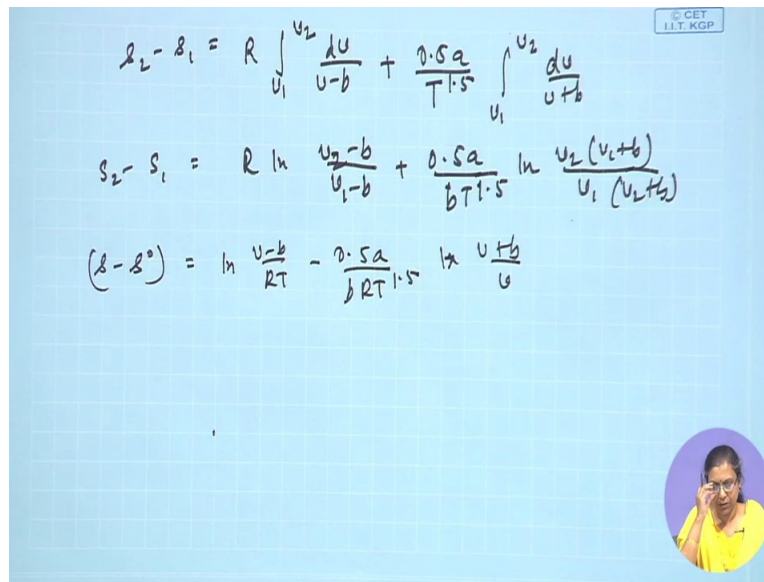 © CET
I.I.T. KGP
s₂ - s₁ = R ∫_{v₁}^{v₂} dv/(v-b) + 0.5a/T^{1.5} ∫_{v₁}^{v₂} dv/(v+b)
s₂ - s₁ = R ln (v₂-b)/(v₁-b) + 0.5a/(bT^{1.5}) ln v₂(v₁+b)/(v₁(v₂+b))
(s - s°) = ln (v-b)/RT - 0.5a/(bRT^{1.5}) ln (v+b)/v